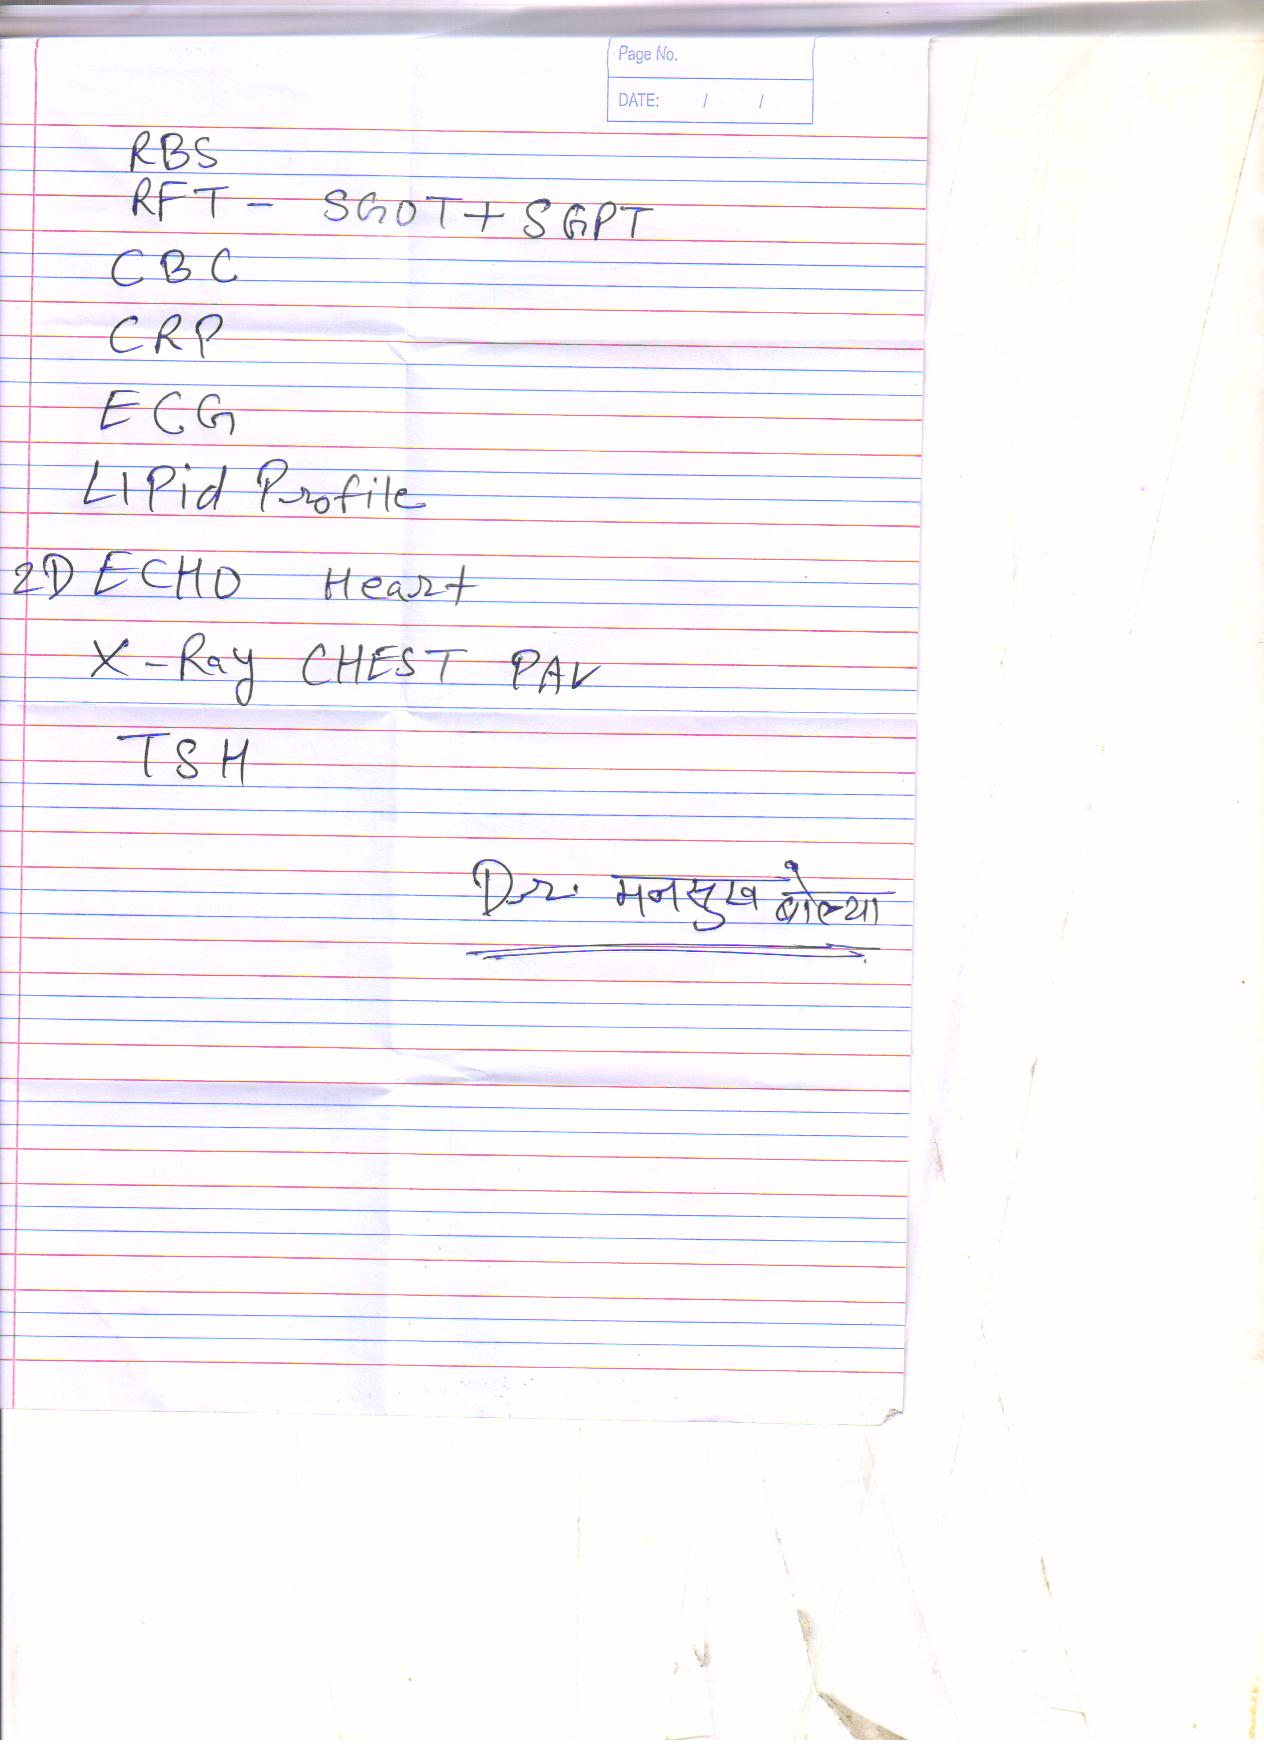 Page No.
DATE: / /
RBS
RFT - SGOT + SGPT
CBC
CRP
ECG
LIPid Profile
2D ECHO Heart
X-Ray CHEST PAV
TSH
Dr. मनसुख बोल्या